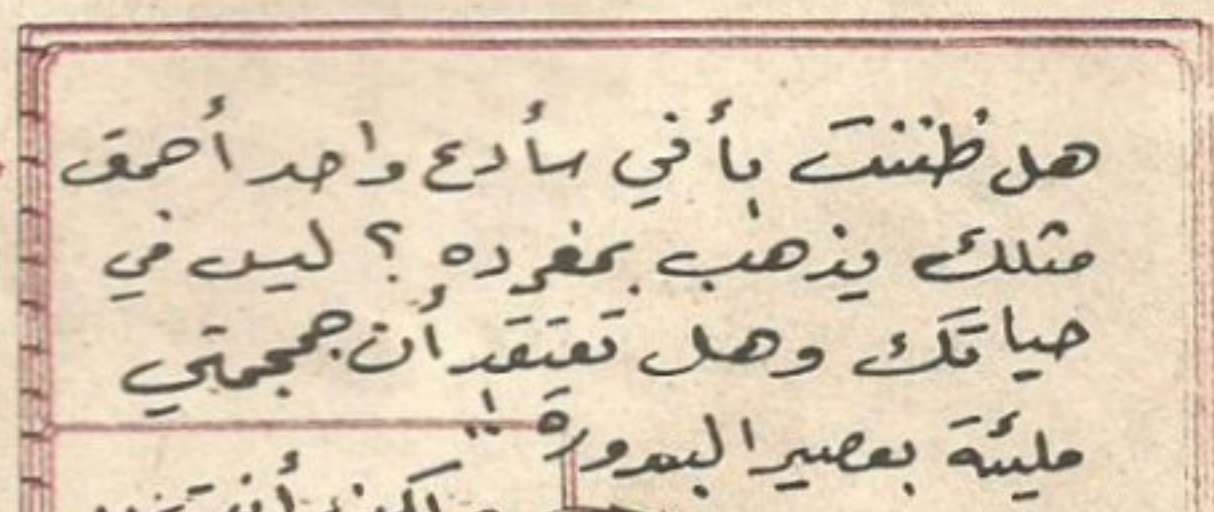 هل ظننت بأني سأدع واحد أحمق
مثلك يذهب بمفرده ؟ ليس في
حياتك وهل تعتقد أن جمجمتي
مليئة بعصير البندورة !!